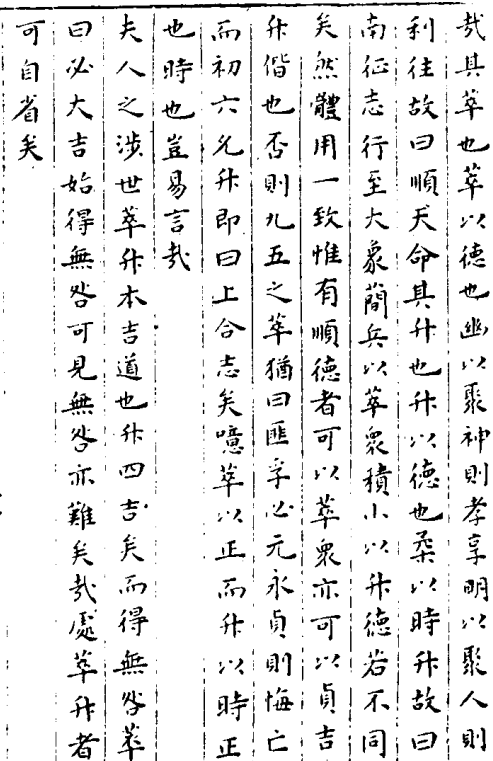 哉其萃也萃以德也幽以聚神則孝享明以聚人則
利往故曰順天命其升也升以德也柔以時升故曰
南征志行至大象簡兵以萃衆積小以升德若不同
矣然體用一致惟有順德者可以萃衆亦可以貞吉
升偕也否則九五之萃猶曰匪孚必元永貞則悔亡
而初六允升即曰上合志矣噫萃以正而升以時正
也時也豈易言哉
夫人之涉世萃升本吉道也升四吉矣而得無咎萃
曰必大吉始得無咎可見無咎亦難矣哉處萃升者
可自省矣